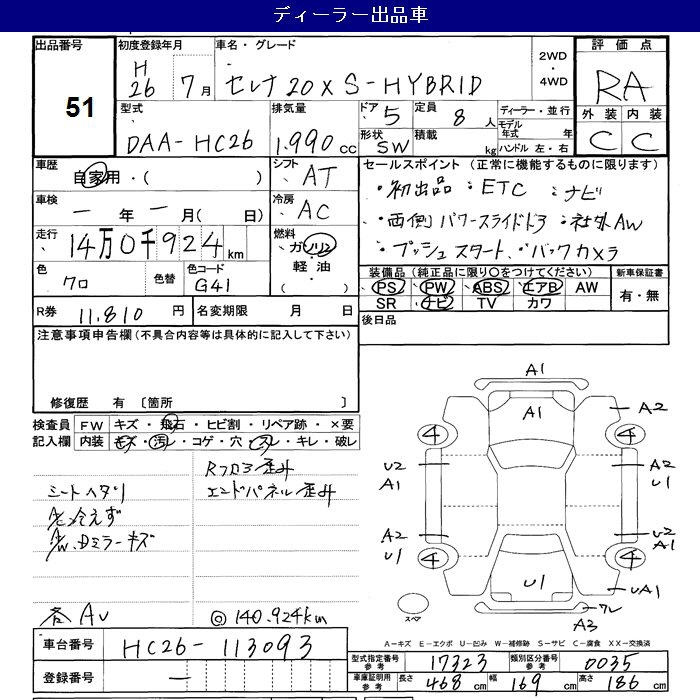 ディーラー出品車
出品番号
51
初度登録年月
H
26 7月
車名・グレード
セレナ 20X S-HYBRID
2WD
・
4WD
評価点
RA
外装 内装
C C
型式
DAA-HC26
排気量
1.990 cc
ドア 5
定員 8人
ディーラー・並行
モデル
年式 年
形状 SW
積載 kg
ハンドル 左・右
車歴
自家用・( )
シフト AT
車検
一年一月( 日)
冷房 AC
走行
14万0千924km
燃料
ガソリン
軽油
色
クロ
色替
色コード
G41
セールスポイント (正常に機能するものに限ります)
・初出品 ・ETC ・ナビ
・両側パワースライドドア ・社外AW
・プッシュスタート ・バックカメラ
装備品(純正品に限り○をつけてください)
PS PW ABS エアB AW
SR ナビ TV カワ
新車保証書
有・無
R券 11.810 円
名変期限 月 日
後日品
注意事項申告欄(不具合内容等は具体的に記入して下さい)
修復歴 有 〔箇所 〕
検査員 FW キズ・飛石・ヒビ割・リペア跡・×要
記入欄 内装 キズ・汚レ・コゲ・穴・スレ・キレ・破レ
Rフロア歪み
エンドパネル歪み
シートヘタリ
A/C冷えず
A/W、Dミラーキズ
各AU
◎140.924km
A1
A1
A2
4 4
U2
A1
A2
U1
A2
U1
U2
A1
4 4
U1
UA1
ワレ
A3
スペア
A-キズ E-エクボ U-凹み W-補修跡 S-サビ C-腐食 XX-交換済
車台番号 HC26-113093
登録番号 一
型式指定番号
参考
17323
類別区分番号
参考
0035
車庫証明用
参考
長さ 468 cm 幅 169 cm 高さ 186 cm